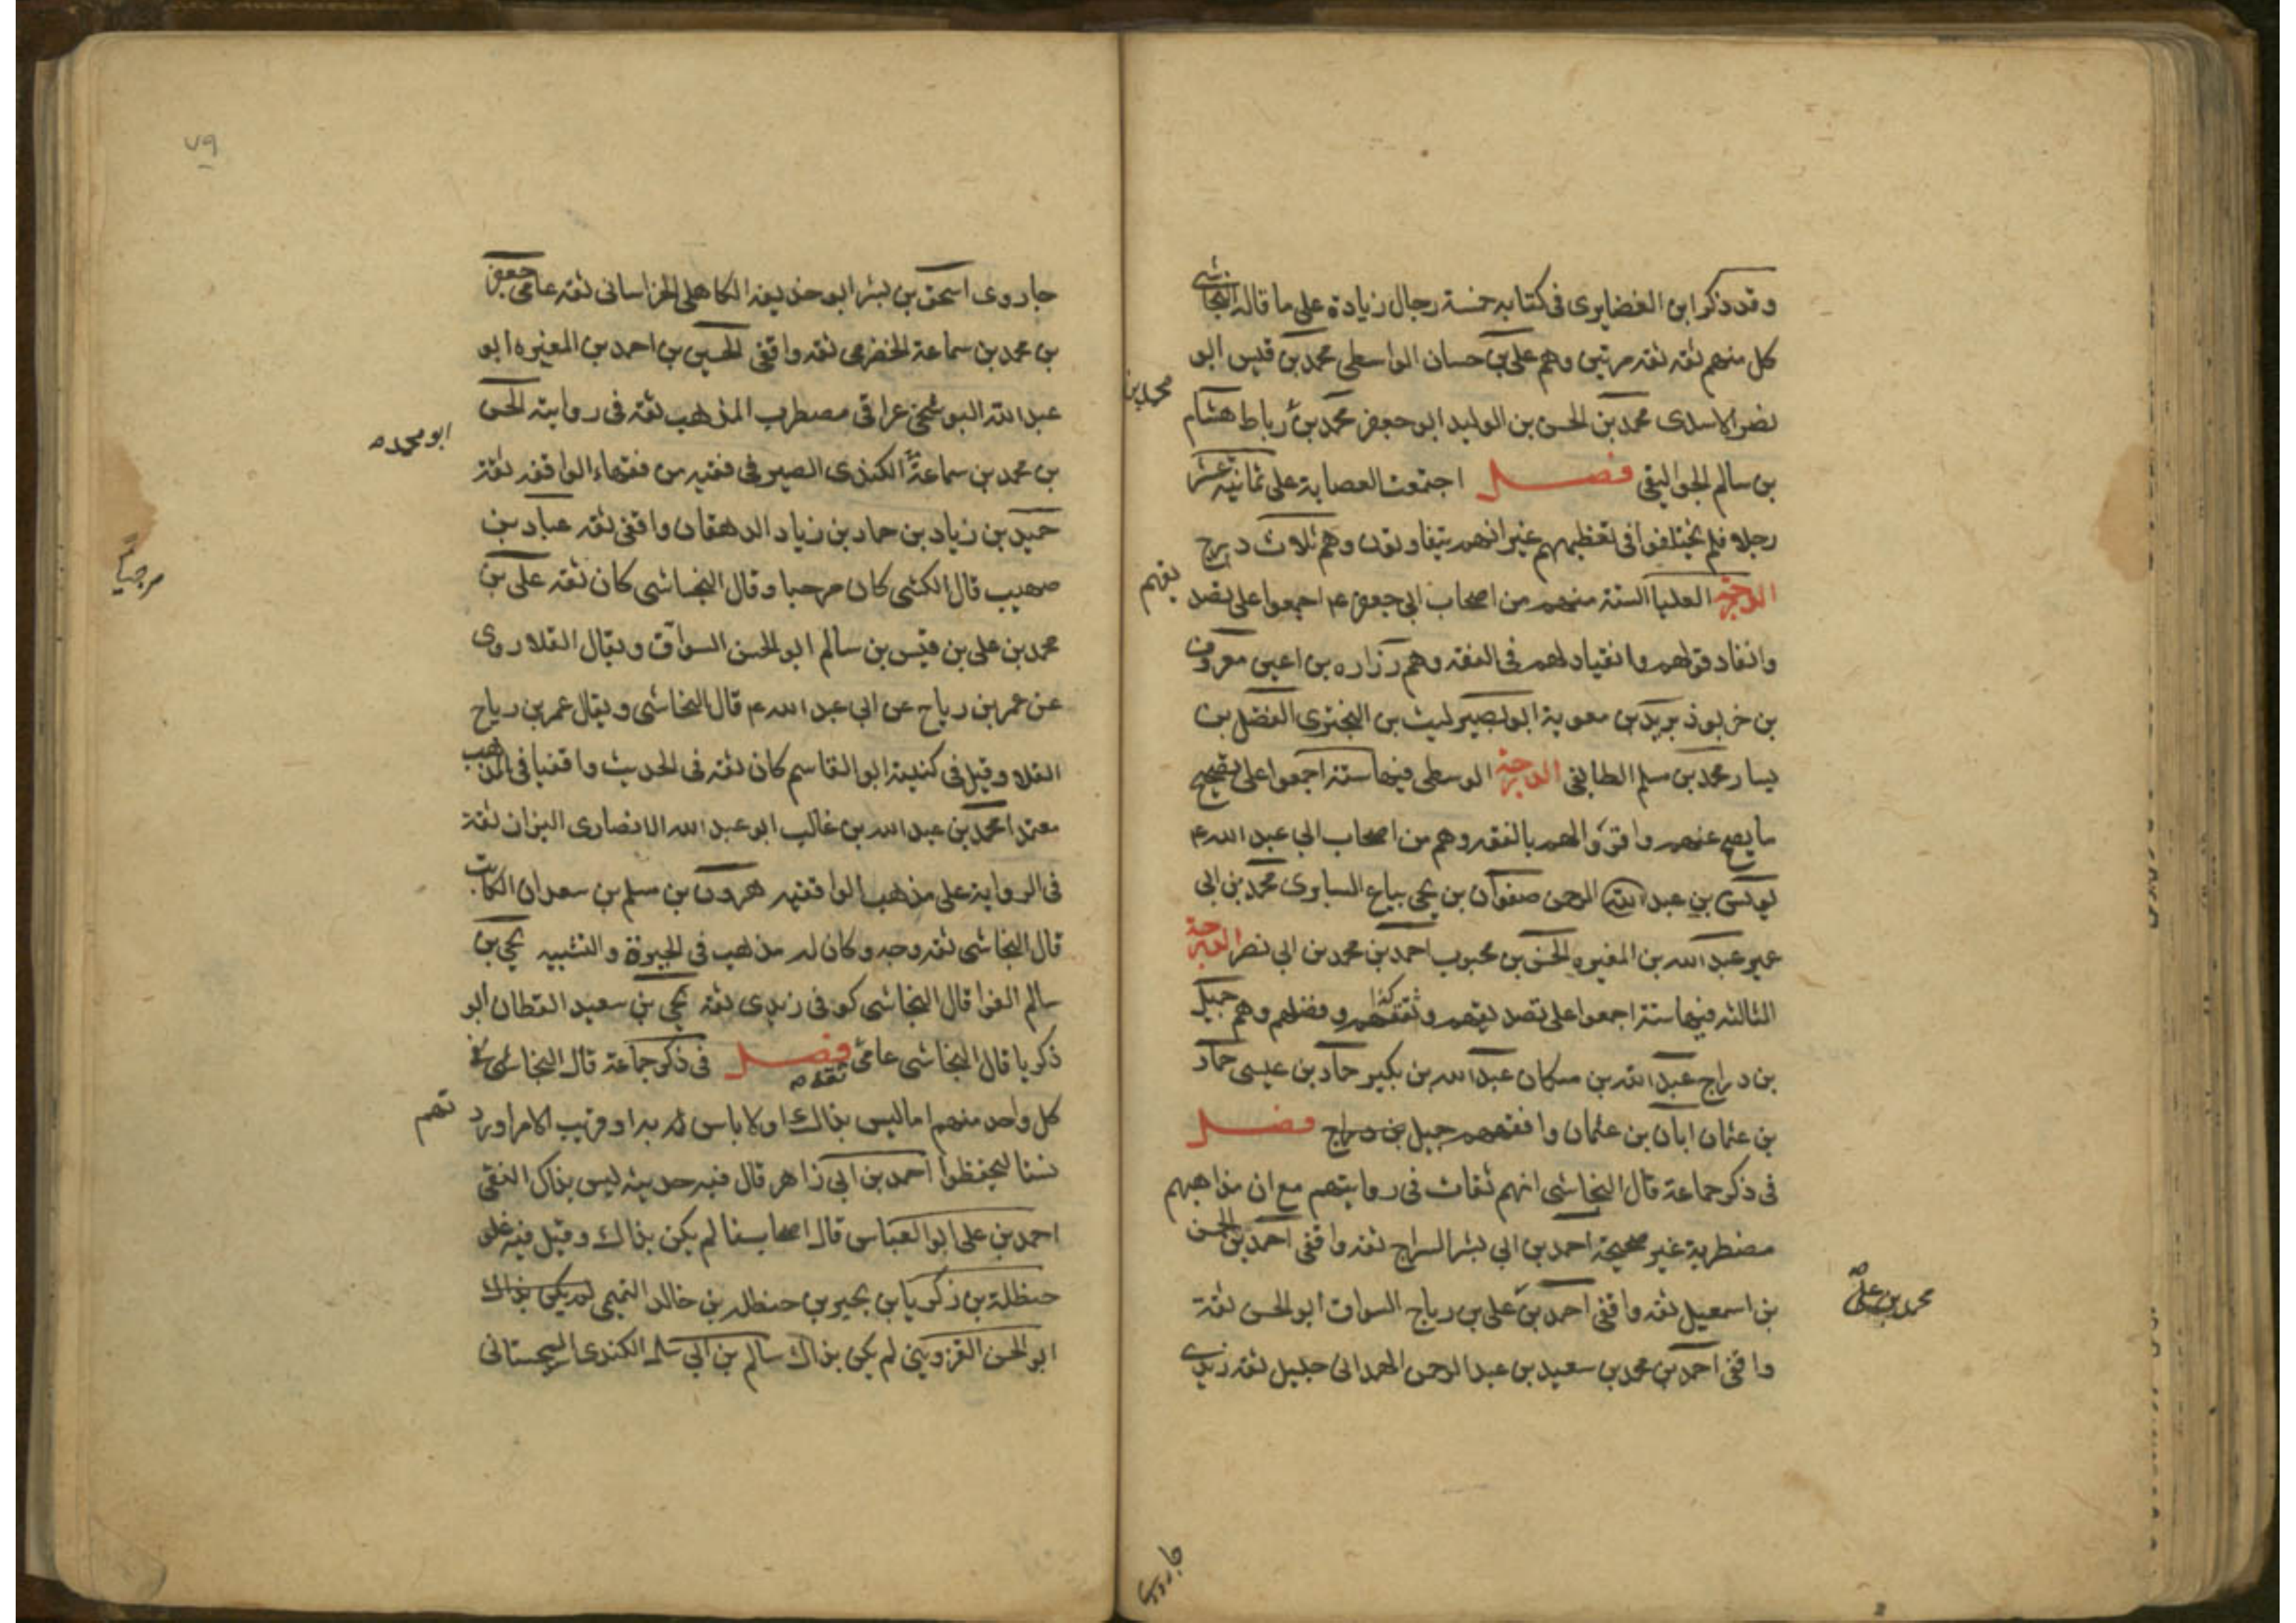 وقد ذكر ابن الغضايرى فى كتابه خمسة رجال زيادة على ما قاله النجاشى
كل منهم ثقه ثقه مرتين وهم على بن حسان الواسطى محمد بن قيس ابو
نصر الاسدى محمد بن الحسن بن الوليد ابو جعفر محمد بن رباط هشام
محمد بن
بن سالم الجواليقى فصل اجتمعت العصابة على ثمانية عشر
رجلا فلم يختلفوا فى تعظيمهم غير انهم يتفاوتون وهم ثلاث درج
الدرجة العليا الستة منهم من اصحاب ابى جعفر ع اجمعوا على تصد
يقهم
وانفاد قولهم وانقيادلهم فى الفقه وهم زراره بن اعين معروف
بن خربوذ بريد بن معوية ابو بصير ليث بن البخترى الفضل بن
يسار محمد بن مسلم الطايفى الدرجة الوسطى فيها ستة اجمعوا على تصحيح
ما يصح عنهم واقروا لهم بالفقه وهم من اصحاب ابى عبد الله ع
يونس بن عبد الرحمن صفوان بن يحيى بياع السابرى محمد بن ابى
عمير عبد الله بن المغيره الحسن بن محبوب احمد بن محمد بن ابى نصر الدرجة
الثالثه فيها ستة اجمعوا على تصديقهم وثقتهم كذا وفضلهم وهم جميل
بن دراج عبد الله بن مسكان عبد الله بن بكير حماد بن عيسى حماد
بن عثمان ابان بن عثمان وافقههم جميل بن دراج فصل
فى ذكر جماعة قال النجاشى انهم ثقات فى روايتهم مع ان مذاهبهم
مضطربة غير صحيحة احمد بن ابى بشر السراج ثقه واقفى احمد بن الحسن
بن اسمعيل ثقه واقفى احمد بن على بن رباح السواق ابو الحسن ثقة
محمد بن على
واقفى احمد بن محمد بن سعيد بن عبد الرحمن الهمدانى جليل ثقه زيدى
جارودى
٧٩
جارودى اسحق بن بشر ابو حذيفه الكاهلى الخراسانى ثقه عامى جعفر
بن محمد بن سماعة الحضرمى ثقه واقفى الحسين بن احمد بن المغيره ابو
عبد الله البوشنجى عراقى مضطرب المذهب ثقه فى روايته الحسن
بن محمد بن سماعة الكندى الصيرفى فقيه من فقهاء الواقفه ثقة
ابو محمد صح
حميد بن زياد بن حماد بن زياد الدهقان واقفى ثقه عباد بن
صهيب قال الكشى كان مرجيا وقال النجاشى كان ثقه على بن
مرجيا
محمد بن على بن قيس بن سالم ابو الحسن السواق ويقال القلا روى
عن عمر بن رياح عن ابى عبد الله ع قال النجاشى ويقال عمر بن رياح
القلا وقيل فى كنيته ابو القاسم كان ثقه فى الحديث واقفيا فى المذهب
معتمدا محمد بن عبد الله بن غالب ابو عبد الله الانصارى البزاز ثقة
فى الرواية على مذهب الواقفيه هرون بن مسلم بن سعدان الكاتب
قال النجاشى ثقه وجه وكان له مذهب فى الجبر والتشبيه يحيى بن
سالم الفرا قال النجاشى كوفى زيدى ثقه يحيى بن سعيد القطان ابو
ذكريا قال النجاشى عامى ثقه صح فصل فى ذكر جماعة قال النجاشى فى
كل واحد منهم اما ليس بذاك او لا باس به او قريب الامر اورد
تهم
نسنا ليحفظوا احمد بن ابى زاهر قال فيه حديثه ليس بذاك النقى
احمد بن على ابو العباس قال اصحابنا لم يكن بذاك وقيل فيه غلو
حنظلة بن زكريا بن يحيى بن حنظله بن خالد التميمى لم يكن بذاك
ابو الحسن القزوينى لم يكن بذاك سالم بن ابى سلمه الكندى السجستانى